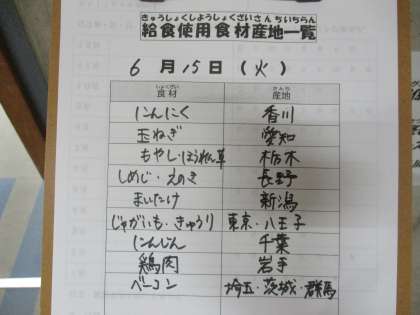 きゅうしょくしようしょくざいさんちいちらん
給食使用食材産地一覧
6月15日(火)
しょくざい さんち
食材 産地
にんにく 香川
玉ねぎ 愛知
もやし・ほうれん草 栃木
しめじ・えのき 長野
まいたけ 新潟
じゃがいも・きゅうり 東京・八王子
にんじん 千葉
鶏肉 岩手
ベーコン 埼玉・茨城・群馬